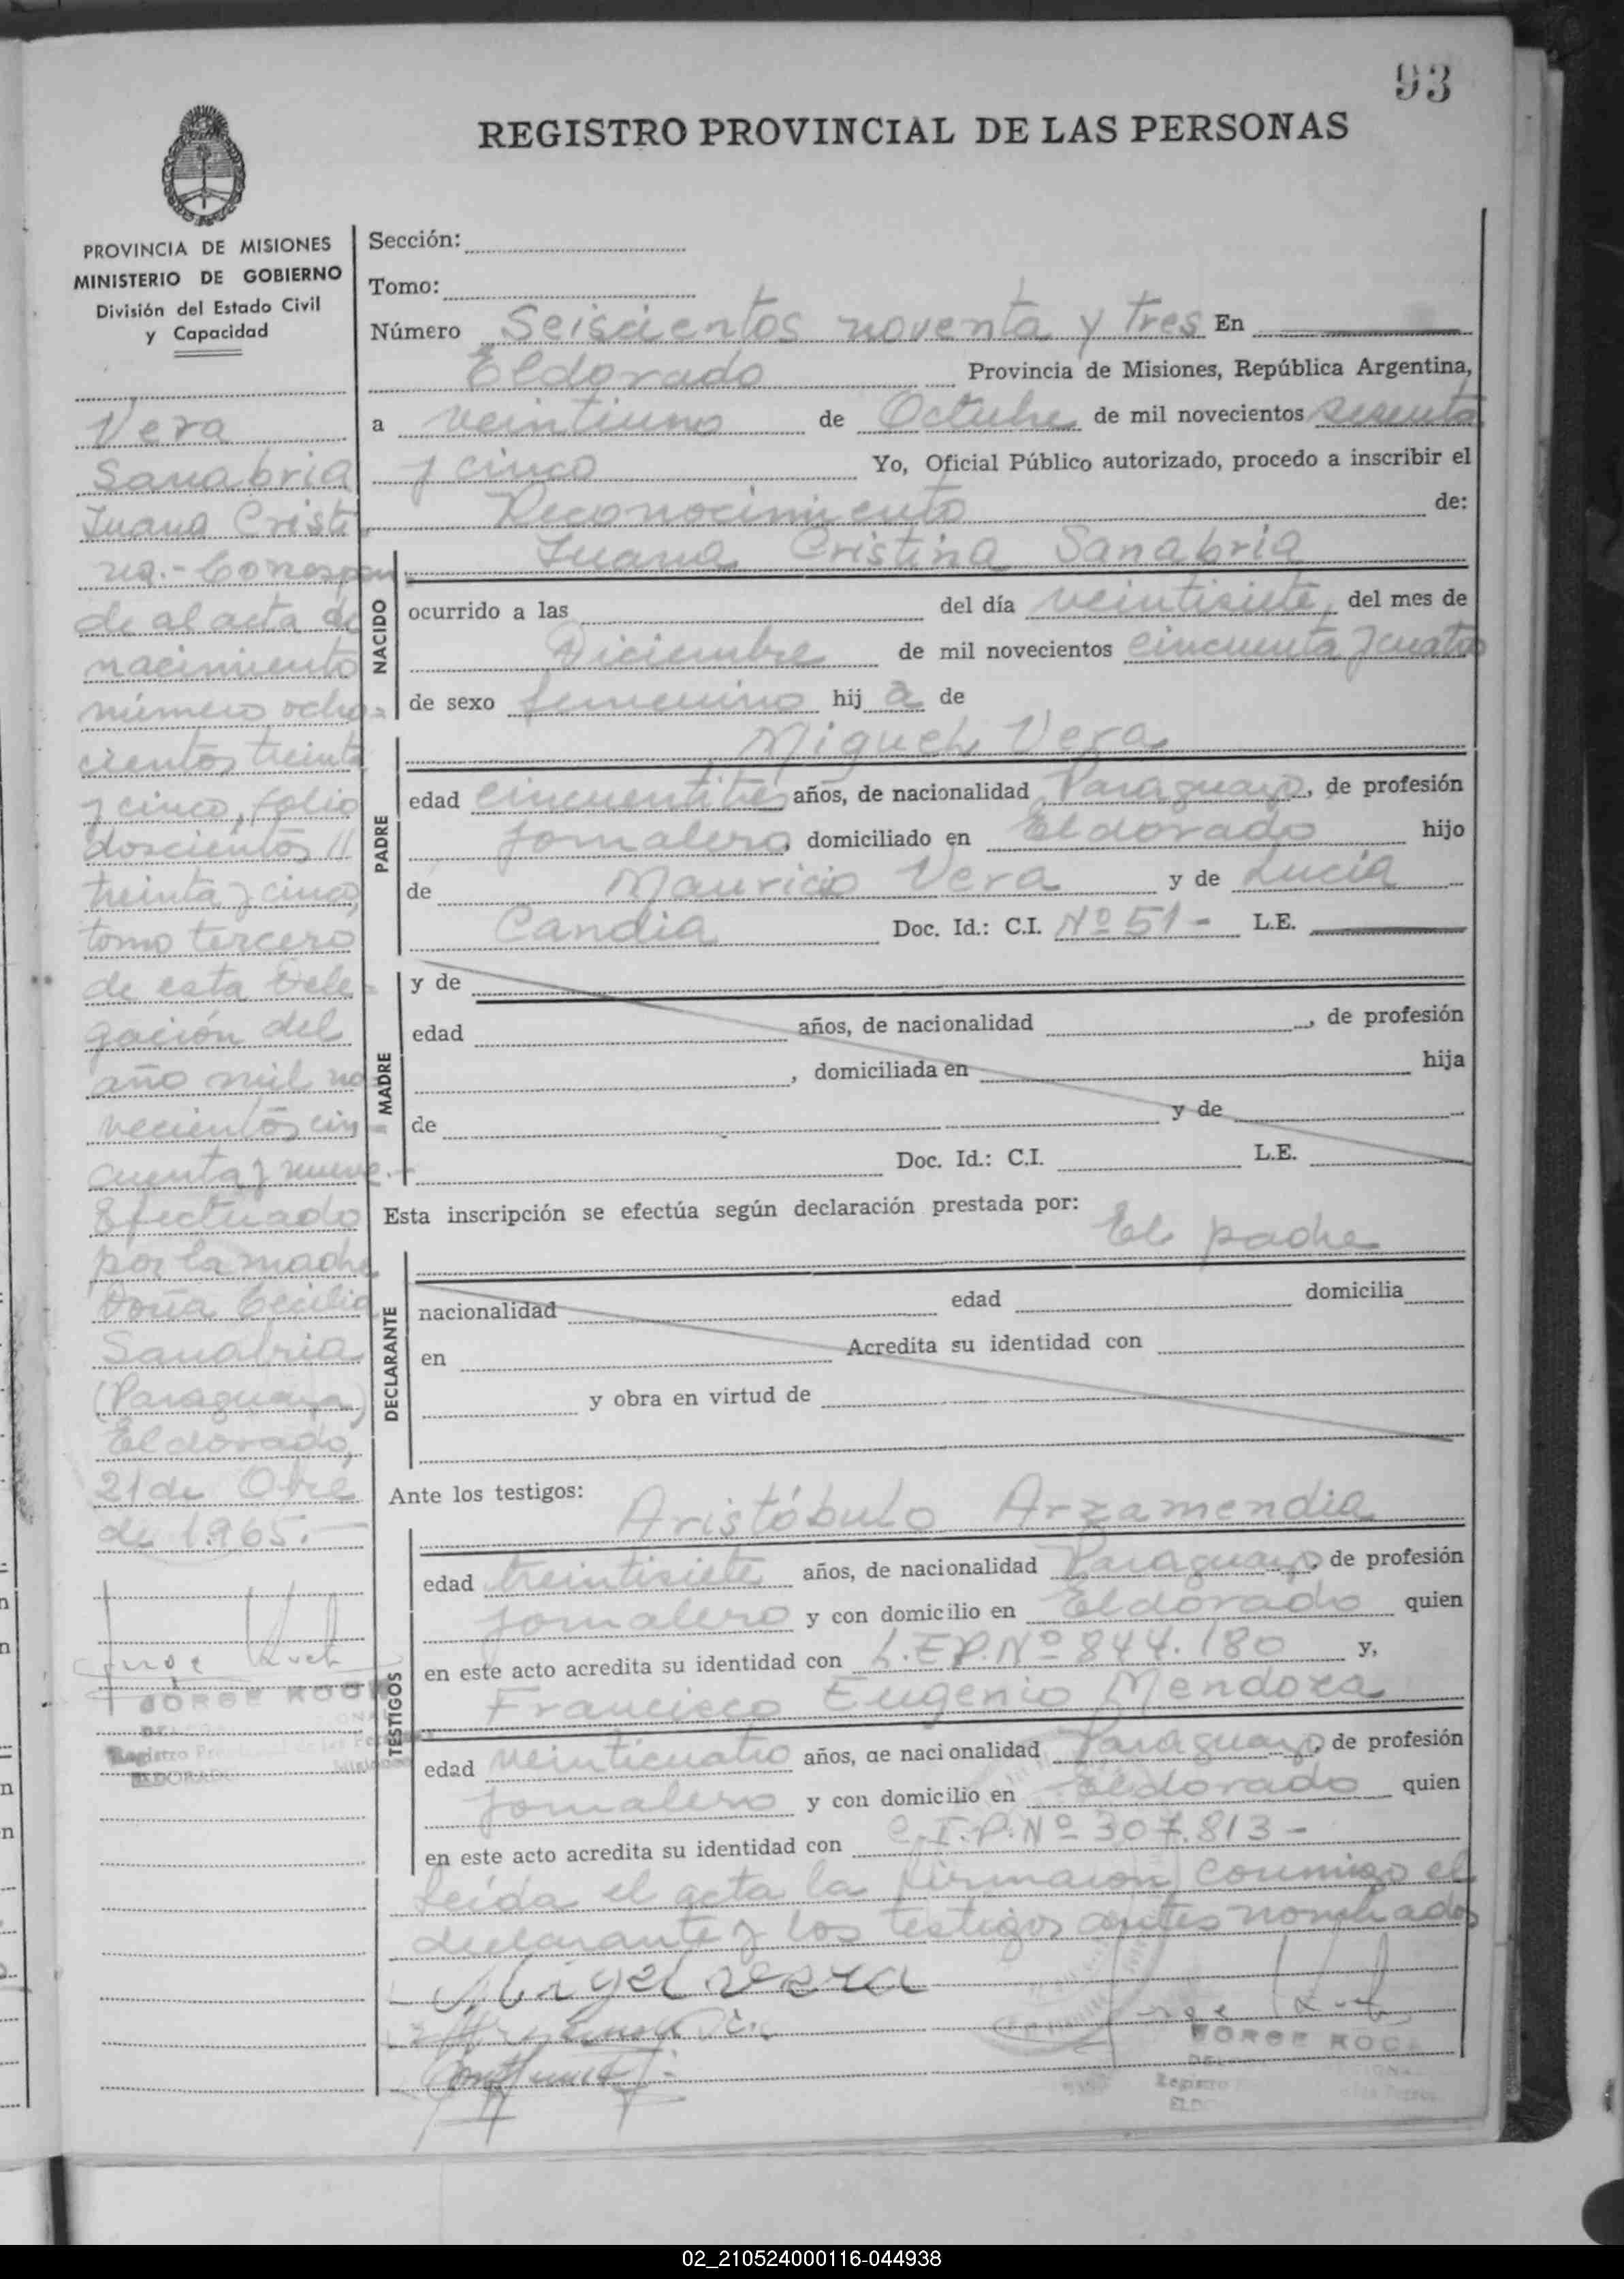 93
REGISTRO PROVINCIAL DE LAS PERSONAS
PROVINCIA DE MISIONES
MINISTERIO DE GOBIERNO
División del Estado Civil
y Capacidad
Vera
Sanabria
Juana Cristi
na.- Correspon
de al acta de
nacimiento
número ocho=
cientos treinta
y cinco, folio
doscientos //
treinta y cinco,
tomo tercero
de esta Dele=
gación del
año mil no
vecientos cin=
cuenta y nueve.-
Efectuado
por la madre
Doña Cecilia
Sanabria
(Paraguaya)
Eldorado,
21 de Obre
de 1.965.-
JORGE KOCH
Registro
ELDORADO
Sección:
Tomo:
Número Seiscientos noventa y tres En
Eldorado Provincia de Misiones, República Argentina,
a veintiuno de Octubre de mil novecientos sesenta
y cinco Yo, Oficial Público autorizado, procedo a inscribir el
Reconocimiento de:
Juana Cristina Sanabria
NACIDO
ocurrido a las del día veintisiete, del mes de
Diciembre de mil novecientos cincuenta y cuatro
de sexo femenino hij a de
Miguel Vera
PADRE
edad cincuentitres años, de nacionalidad Paraguayo, de profesión
jornalero, domiciliado en Eldorado hijo
de Mauricio Vera y de Lucia
Candia Doc. Id.: C.I. Nº 51- L.E.
MADRE
y de
edad años, de nacionalidad , de profesión
, domiciliada en hija
de y de
Doc. Id.: C.I. L.E.
Esta inscripción se efectúa según declaración prestada por: El padre
DECLARANTE
nacionalidad edad domicilia
en Acredita su identidad con
y obra en virtud de
Ante los testigos: Aristóbulo Arzamendia
TESTIGOS
edad treintisiete años, de nacionalidad Paraguayo, de profesión
jornalero y con domicilio en Eldorado quien
en este acto acredita su identidad con Nº 844.180 y,
Francisco Eugenio Mendoza
edad veinticuatro años, de nacionalidad Paraguayo, de profesión
jornalero y con domicilio en Eldorado quien
en este acto acredita su identidad con C.I.P. Nº 307.813-
Leída el acta la firmaron conmigo el
declarante y los testigos antes nombrados
Migel vera
JORGE KOC
Registro
ELD
02_210524000116-044938